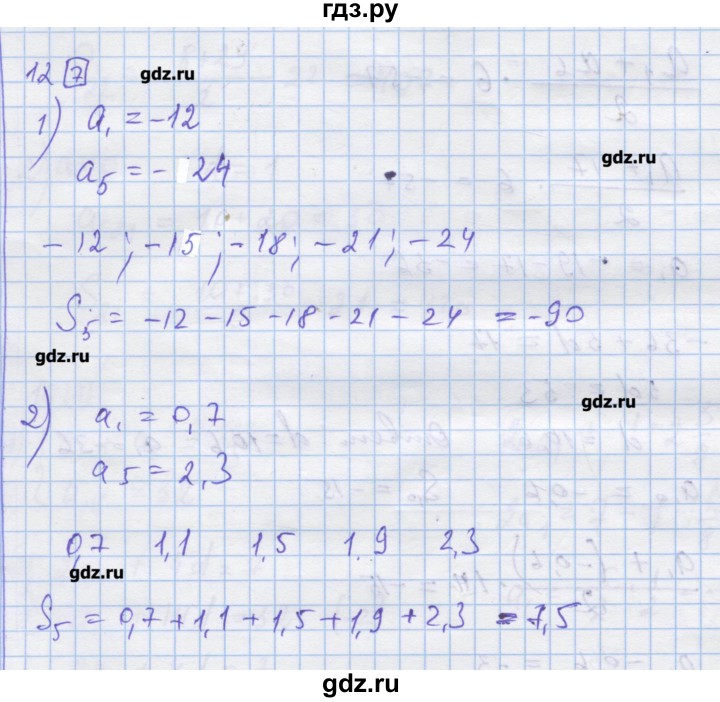 гдз.ру
12 7
gdz.ru
1) a₁ = -12
gdz.ru
a₅ = - 24
-12; -15; -18; -21; -24
S₅ = -12 -15 -18 -21 - 24 = -90
gdz.ru
gdz.ru
2) a₁ = 0,7
a₅ = 2,3
0,7 1,1 1,5 1,9 2,3
gdz.ru
gdz.ru
S₅ = 0,7 + 1,1 + 1,5 + 1,9 + 2,3 = 7,5
gdz.ru